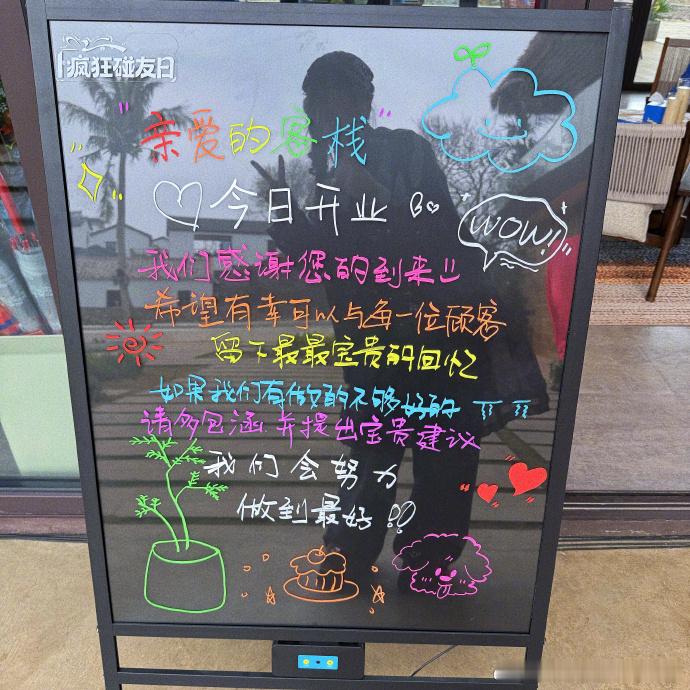 疯狂碰友日
"亲爱的客栈"
今日开业
WOW!
我们感谢您的到来!!
希望有幸可以与每一位顾客
留下最最宝贵的回忆
如果我们有做的不够好的
请多包涵并提出宝贵建议
我们会努力
做到最好!!